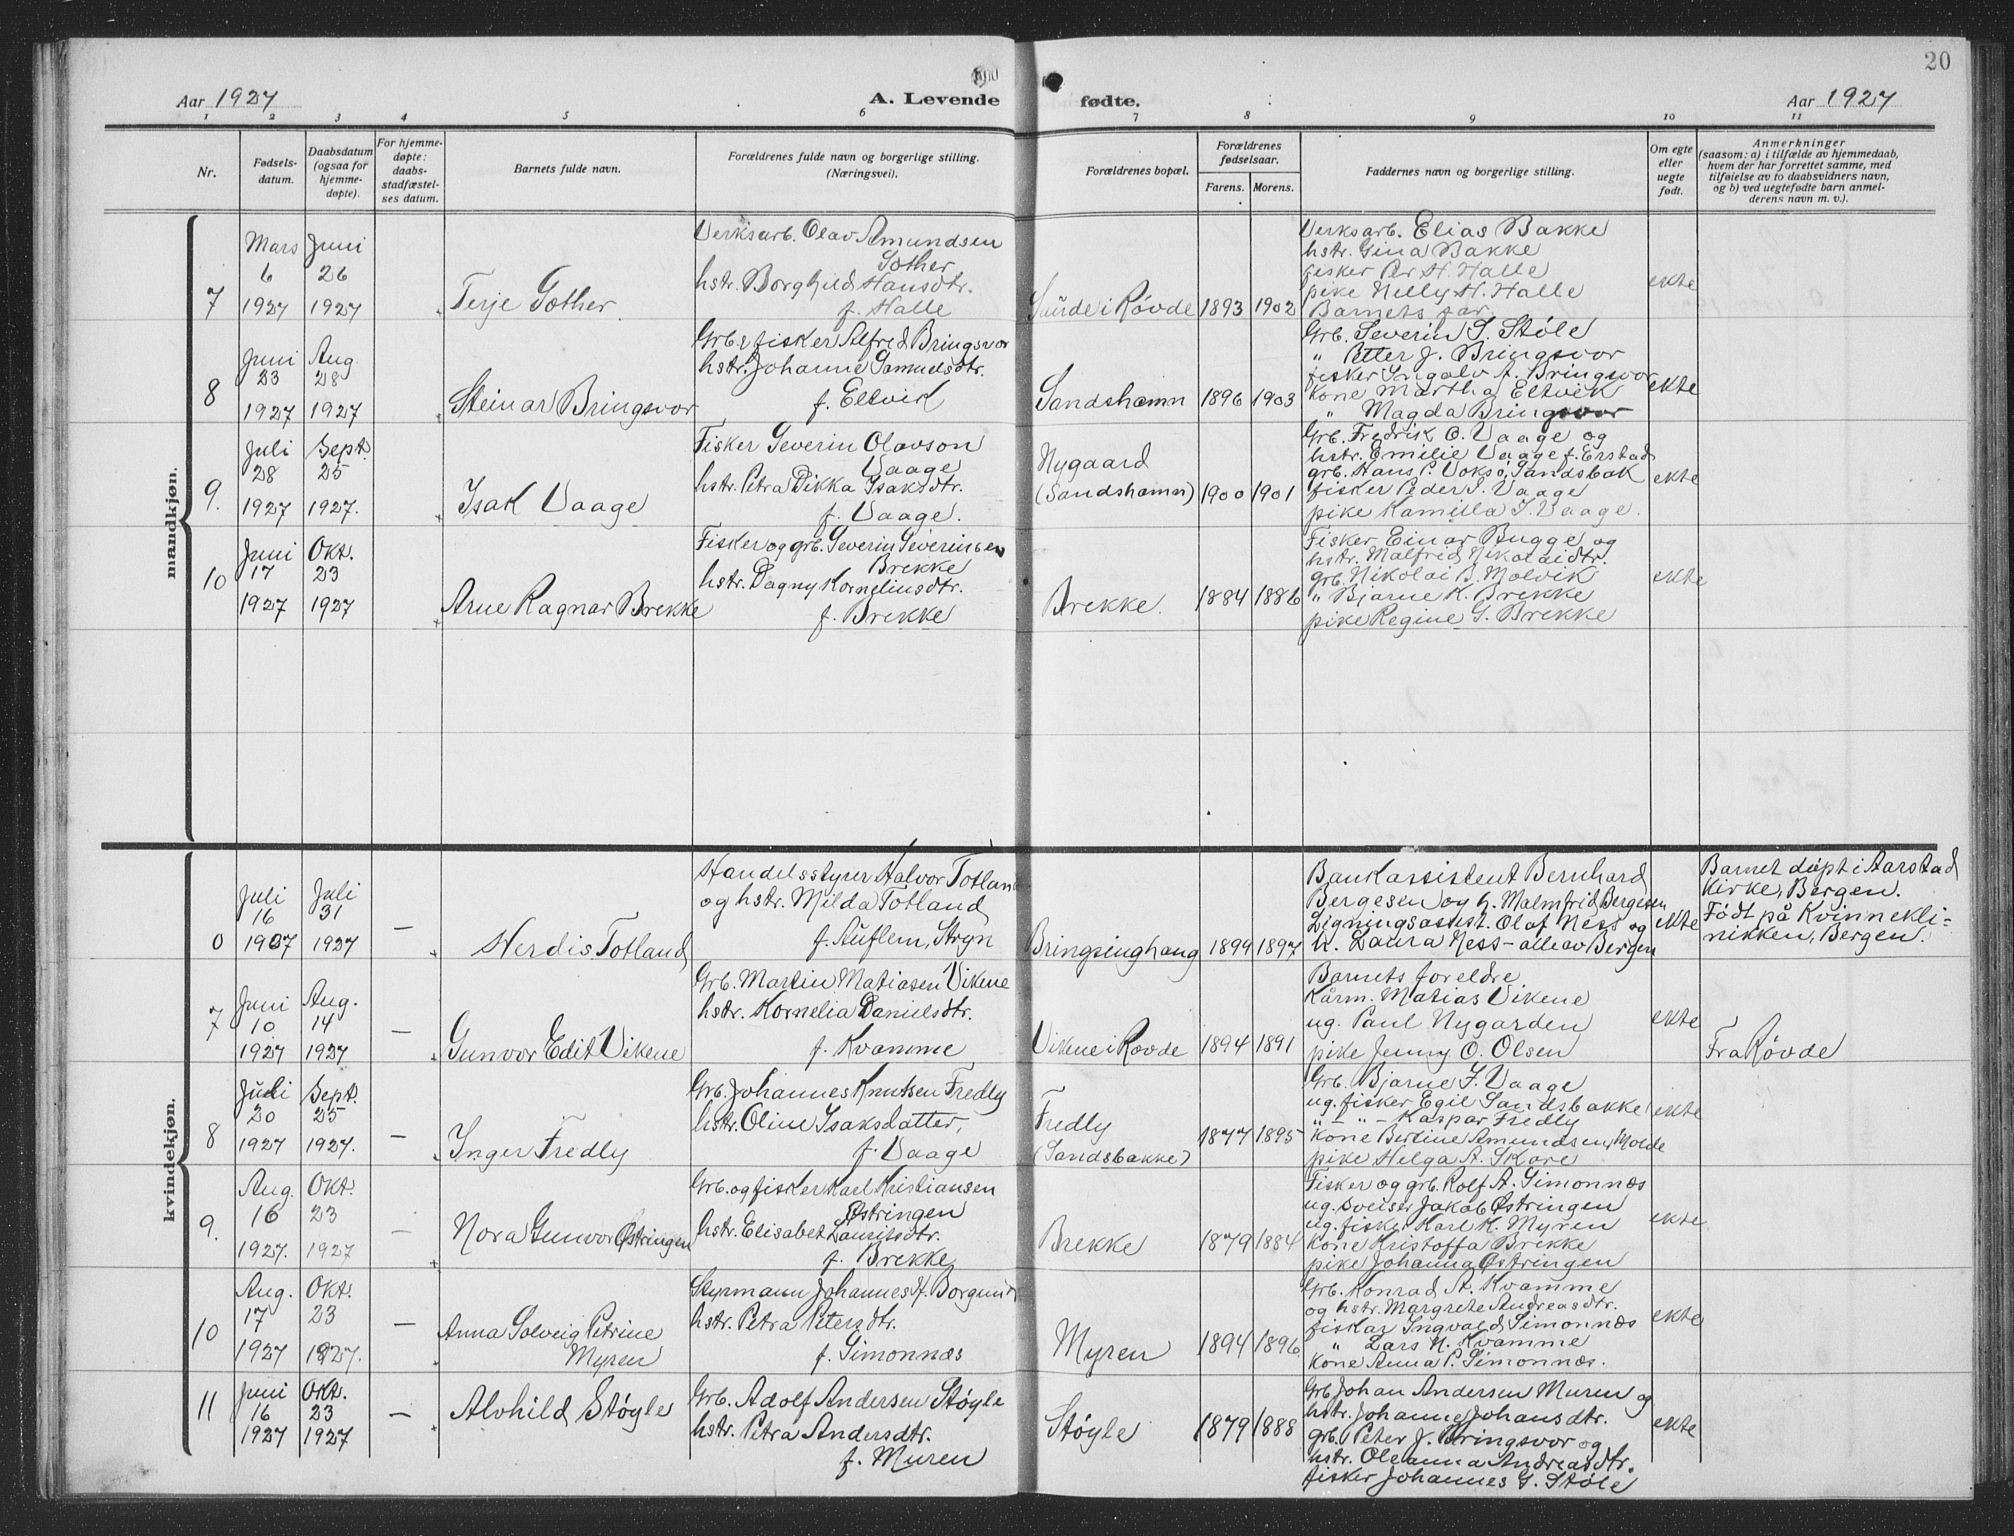 20
Aar 1927
A. Levende
fødte.
Aar 1927
1 2 3 4 5 6 7 8 9 10 11
Nr.
Fødsels-
datum.
Daabsdatum
(ogsaa for
hjemme-
døpte).
For hjemme-
døpte:
daabs-
stadfæstel-
ses datum.
Barnets fulde navn.
Forældrenes fulde navn og borgerlige stilling.
(Næringsvei).
Forældrenes bopæl.
Forældrenes
fødselsaar.
Farens. Morens.
Faddernes navn og borgerlige stilling.
Om egte
eller
uegte
født.
Anmerkninger
(saasom: a) i tilfælde av hjemmedaab,
hvem der har forrettet samme, med
tilføielse av to daabsvidners navn,
og b) ved uegtefødte barn anmel-
derens navn m. v.).
mandkjøn.
7
Mars
6
1927
Juni
26
1927
Terje Gother
Verksarb. Olav Amundsen
Gother
hstr. Borghild Hansdtr.
f. Halle
Saude i Røvde
1893
1902
Verksarb. Elias Bakke
hstr. Gina Bakke
fisker Per H. Halle
pike Nelly H. Halle
Barnets far.
ekte
8
Juni
23
1927
Aug.
28
1927
Steinar Bringsvor
Grb. & fisker Alfred Bringsvor
hstr. Johanne Samuelsdtr.
f. Eltvik
Sandshamn
1896
1903
Grb. Severin S. Støle
" Petter J. Bringsvor
fisker Ingolv A. Bringsvor
Kone Martha Eltvik
" Magda Bringsvor
ekte
9.
Juli
28
1927
Sept.
25
1927.
Isak Vaage
Fisker Severin Olavson
Vaage
hstr. Petra Rikka Isaksdtr.
f. Vaage.
Nygaard
(Sandshamn)
1900
1901
Grb. Fredrik O. Vaage og
hstr. Emilie Vaage f. Erstad
grb. Hans P. Voksø, Sandsbak
fisker Peder S. Vaage
pike Kamilla I. Vaage.
ekte
10
Juni
17
1927
Okt.
23
1927
Arne Ragnar Brekke
Fisker og grb. Severin Severinsen
Brekke
hstr. Dagny Korneliusdtr.
f. Brekke
Brekke.
1884
1886
Fisker Einar Bugge og
hstr. Malfrid Nikolaidtr.
grb. Nikolai B. Molvik
" Bjarne K. Brekke
pike Regine G. Brekke
ekte
kvindekjøn.
0
Juli
16
1927
Juli
31
1927
—
Herdis Totland
Handelsstyrer Halvor Totland
og hstr. Milda Totland
f. Auflem, Stryn
Bringsinghaug
1899
1897
Bankassistent Bernhard
Bergesen og h. Malmfrid Bergesen
Ligningsassist. Olaf Ness og
h. Laura Ness - alle av Bergen
ekte
Barnet døpt i Aarstad
Kirke, Bergen.
Født på Kvinnekli-
nikken, Bergen.
7
Juni
10
1927
Aug.
14
1927
—
Gunvor Edit Vikene
Grb. Martin Matiasen Vikene
hstr. Kornelia Danielsdtr.
f. Kvamme
Vikene i Røvde
1894
1891
Barnets foreldre
Kårm. Matias Vikene
ug. Paul Nygarden
pike Jenny O. Olsen
ekte
Fra Røvde
8
Juli
20
1927
Sept.
25
1927.
—
Inger Fredly
Grb. Johannes Knutsen Fredly
hstr. Oline Isaksdatter,
f. Vaage
Fredly
(Sandsbakke)
1877
1895
Grb. Bjarne I. Vaage
ug. fisker Egil Sandsbakke
" - " - Kaspar Fredly
Kone Bertine Amundsen, Molde
pike Helga A. Skare
ekte
9.
Aug.
16
1927.
Okt.
23
1927
—
Nora Gunvor Østringen
Grb. og fisker Karl Kristiansen
Østringen
hstr. Elisabet Lauritsdtr.
f. Brekke
Brekke
1879
1884
Fisker og grb. Rolf A. Simonnæs
ug. sveiser Jakob Østringen
ug. fisker Karl K. Myren
Kone Kristoffa Brekke
pike Johanna Østringen
ekte
10
Aug.
17
1927
Okt.
23
1927.
—
Anna Solveig Petrine
Myren
Styrmann Johannes A. Borgund
hstr. Petra Petersdtr.
f. Simonnæs
Myren
1894
1896
Grb. Konrad A. Kvamme
og hstr. Margrete Andreasdtr.
fisker Ingvald Simonnæs
" Lars N. Kvamme
Kone Anna P. Simonnæs.
ekte
11
Juni
16
1927
Okt.
23
1927
—
Alvhild Støyle
Grb. Adolf Andersen Støyle
hstr. Petra Andersdtr.
f. Muren
Støyle
1879
1888
Grb. Johan Andersen Muren og
hstr. Johanne Johansdtr.
grb. Peter J. Bringsvor og
hstr. Oleanna Andreasdtr.
fisker Johannes G. Støle
ekte